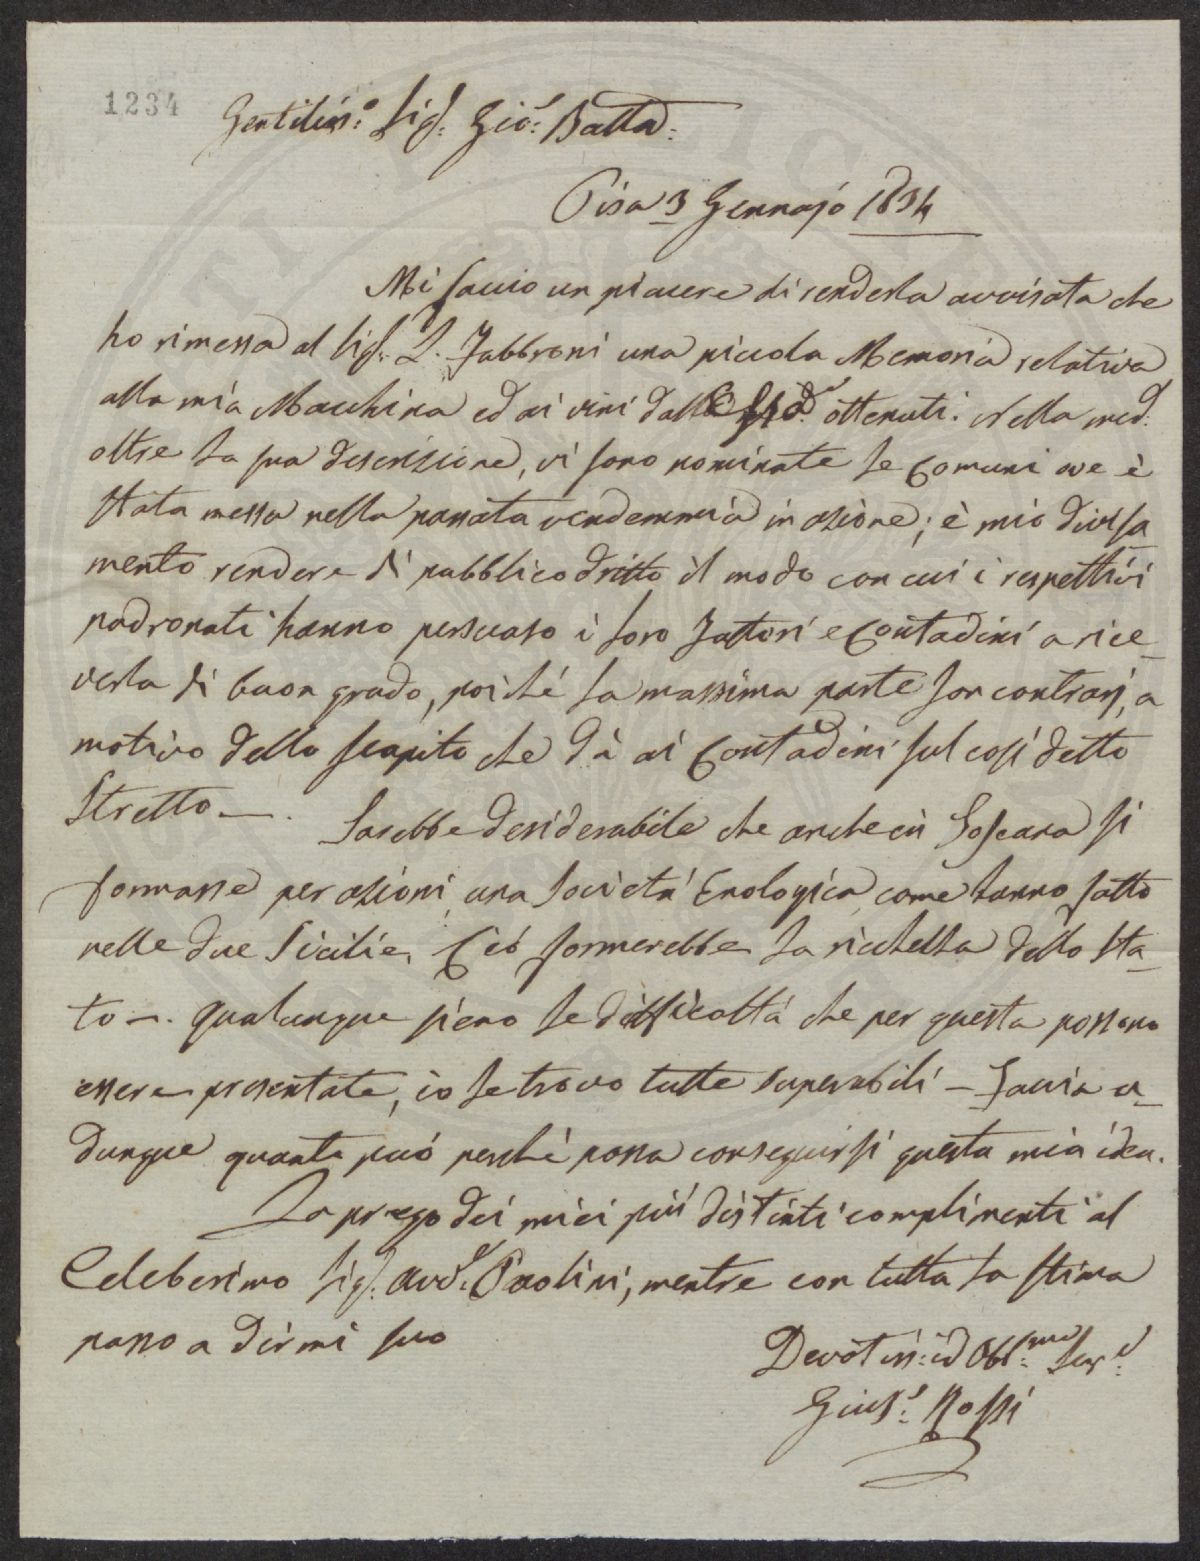 1234
Gentilis.º Sig.r Gio: Batta:
Pisa 3 Gennajo 1834
Mi faccio un piacere di renderla avvisata che
ho rimessa al Sig.r L. Fabbroni una piccola Memoria relativa
alla mia Macchina ed ai vini dall ottenuti. Nella med:
oltre la sua descrizione, vi sono nominate le Comuni ove è
stata messa nella passata vendemmia in azione; è mio divisa
mento rendere di pubblico dritto il modo con cui i respettivi
padronati hanno persuaso i loro Fattori e Contadini a rice-
verla di buon grado, poiché la massima parte son contrarj, a
motivo dello scapito che dà ai Contadini sul così detto
Stretto —. Sarebbe desiderabile che anche in Toscana si
formasse per azioni una Società Enologica, come hanno fatto
nelle due Sicilie. Ciò formerebbe la ricchezza dello Sta-
to —. Qualunque sieno le difficoltà che per questa possano
essere presentate, io le trovo tutte superabili — Faccia a-
dunque quanto può perchè possa conseguirsi questa mia idea.
La prego dei miei più distinti complimenti al
Celeberimo Sig.r Avv. Paolini, mentre con tutta la stima
passo a dirmi suo
Devotiss: ed Obl.mo Ser.e
Gius.e Rossi